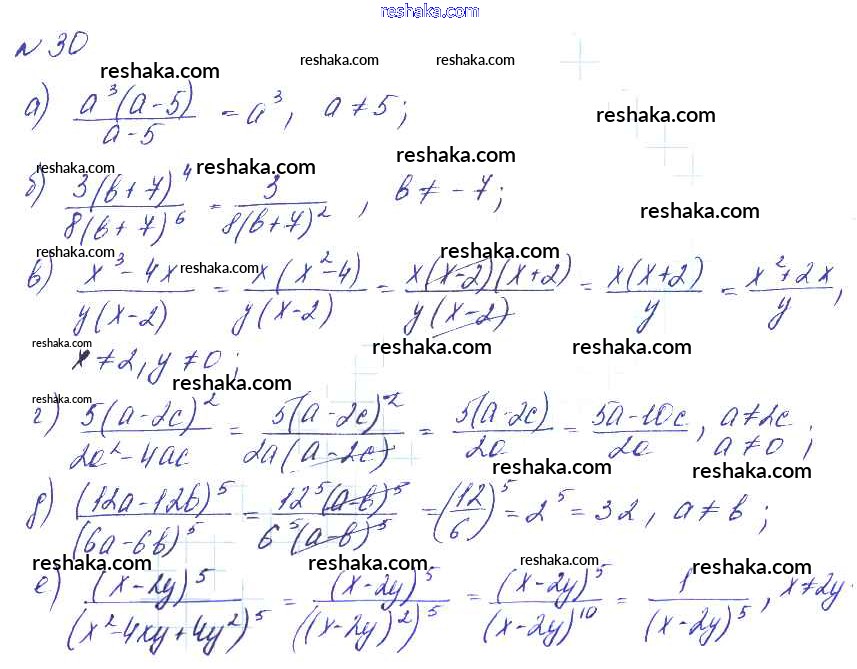 www.reshaka.com
№ 30
reshaka.com reshaka.com reshaka.com
а) a³(a-5)/a-5 = a³, a ≠ 5;
reshaka.com
reshaka.com reshaka.com reshaka.com
б) 3(b+7)⁴/8(b+7)⁶ = 3/8(b+7)², b ≠ -7;
reshaka.com
reshaka.com reshaka.com reshaka.com
в) x³-4x/y(x-2) = x(x²-4)/y(x-2) = x(x-2)(x+2)/y(x-2) = x(x+2)/y = x²+2x/y,
reshaka.com reshaka.com reshaka.com
x ≠ 2, y ≠ 0;
reshaka.com reshaka.com
г) 5(a-2c)²/2a²-4ac = 5(a-2c)²/2a(a-2c) = 5(a-2c)/2a = 5a-10c/2a, a ≠ 2c a ≠ 0;
reshaka.com reshaka.com
д) (12a-12b)⁵/(6a-6b)⁵ = 12⁵(a-b)⁵/6⁵(a-b)⁵ = (12/6)⁵ = 2⁵ = 32, a ≠ b;
reshaka.com reshaka.com reshaka.com reshaka.com
е) (x-2y)⁵/(x²-4xy+4y²)⁵ = (x-2y)⁵/((x-2y)²)⁵ = (x-2y)⁵/(x-2y)¹⁰ = 1/(x-2y)⁵, x ≠ 2y
reshaka.com reshaka.com reshaka.com reshaka.com